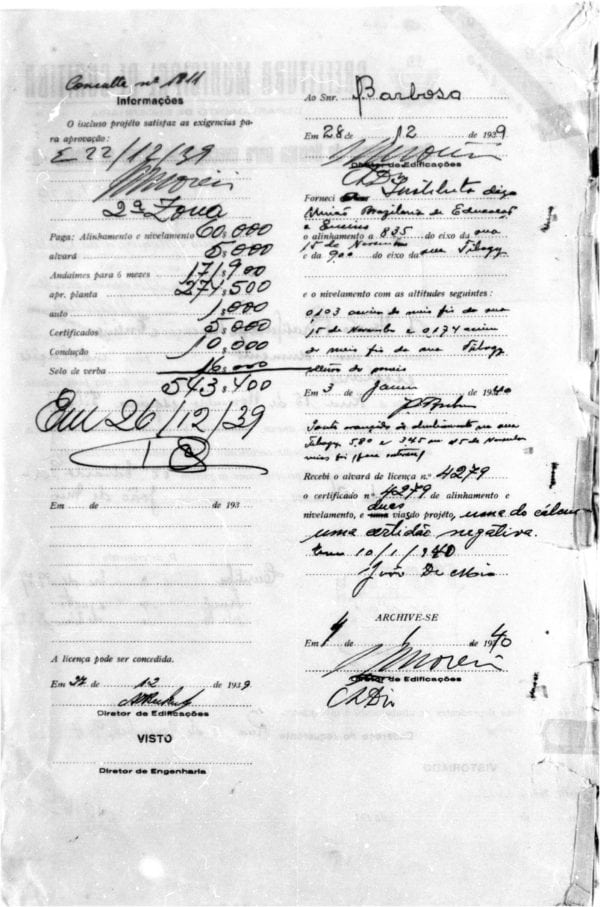 Consulte nº 1811
Informações
O incluso projéto satisfaz as exigencias pa-
ra aprovação:
E 22/12/39
2ª Zona
Paga: Alinhamento e nivelamento 60,000
alvará 5,000
Andaimes para 6 mezes 171,900
apr. planta 274,500
auto 1,000
Certificados 5,000
Condução 10,000
Selo de verba 16,000
543,400
Em 26/12/39
Em de de 193
A licença pode ser concedida.
Em de 12 de 1939
Diretor de Edificações
VISTO
Diretor de Engenharia
Ao Snr. Barbosa
Em 28 de 12 de 1939
Diretor de Edificações
Forneci Instituto digo
União Brazileira de Educação
e Ensino
o alinhamento a 835 do eixo da rua
15 de Novembro
e da 900 do eixo da rua Tibagy
e o nivelamento com as altitudes seguintes:
0,103 acima do meio fio da rua
15 de Novembro e 0,174 acima
do meio fio da rua Tibagy
Em 3 de Janeiro de 1940
Tibagy 5,80 e 3,45 na 15 de Novembro
meio fio
Recebi o alvará de licença n.º 4279
o certificado nº 4279 de alinhamento e
duas
nivelamento, e uma vias do projéto, uma do cálculo
uma certidão negativa.
10/1/940
João De Mio
ARCHIVE-SE
Em 4 de 1 de 1940
Diretor de Edificações